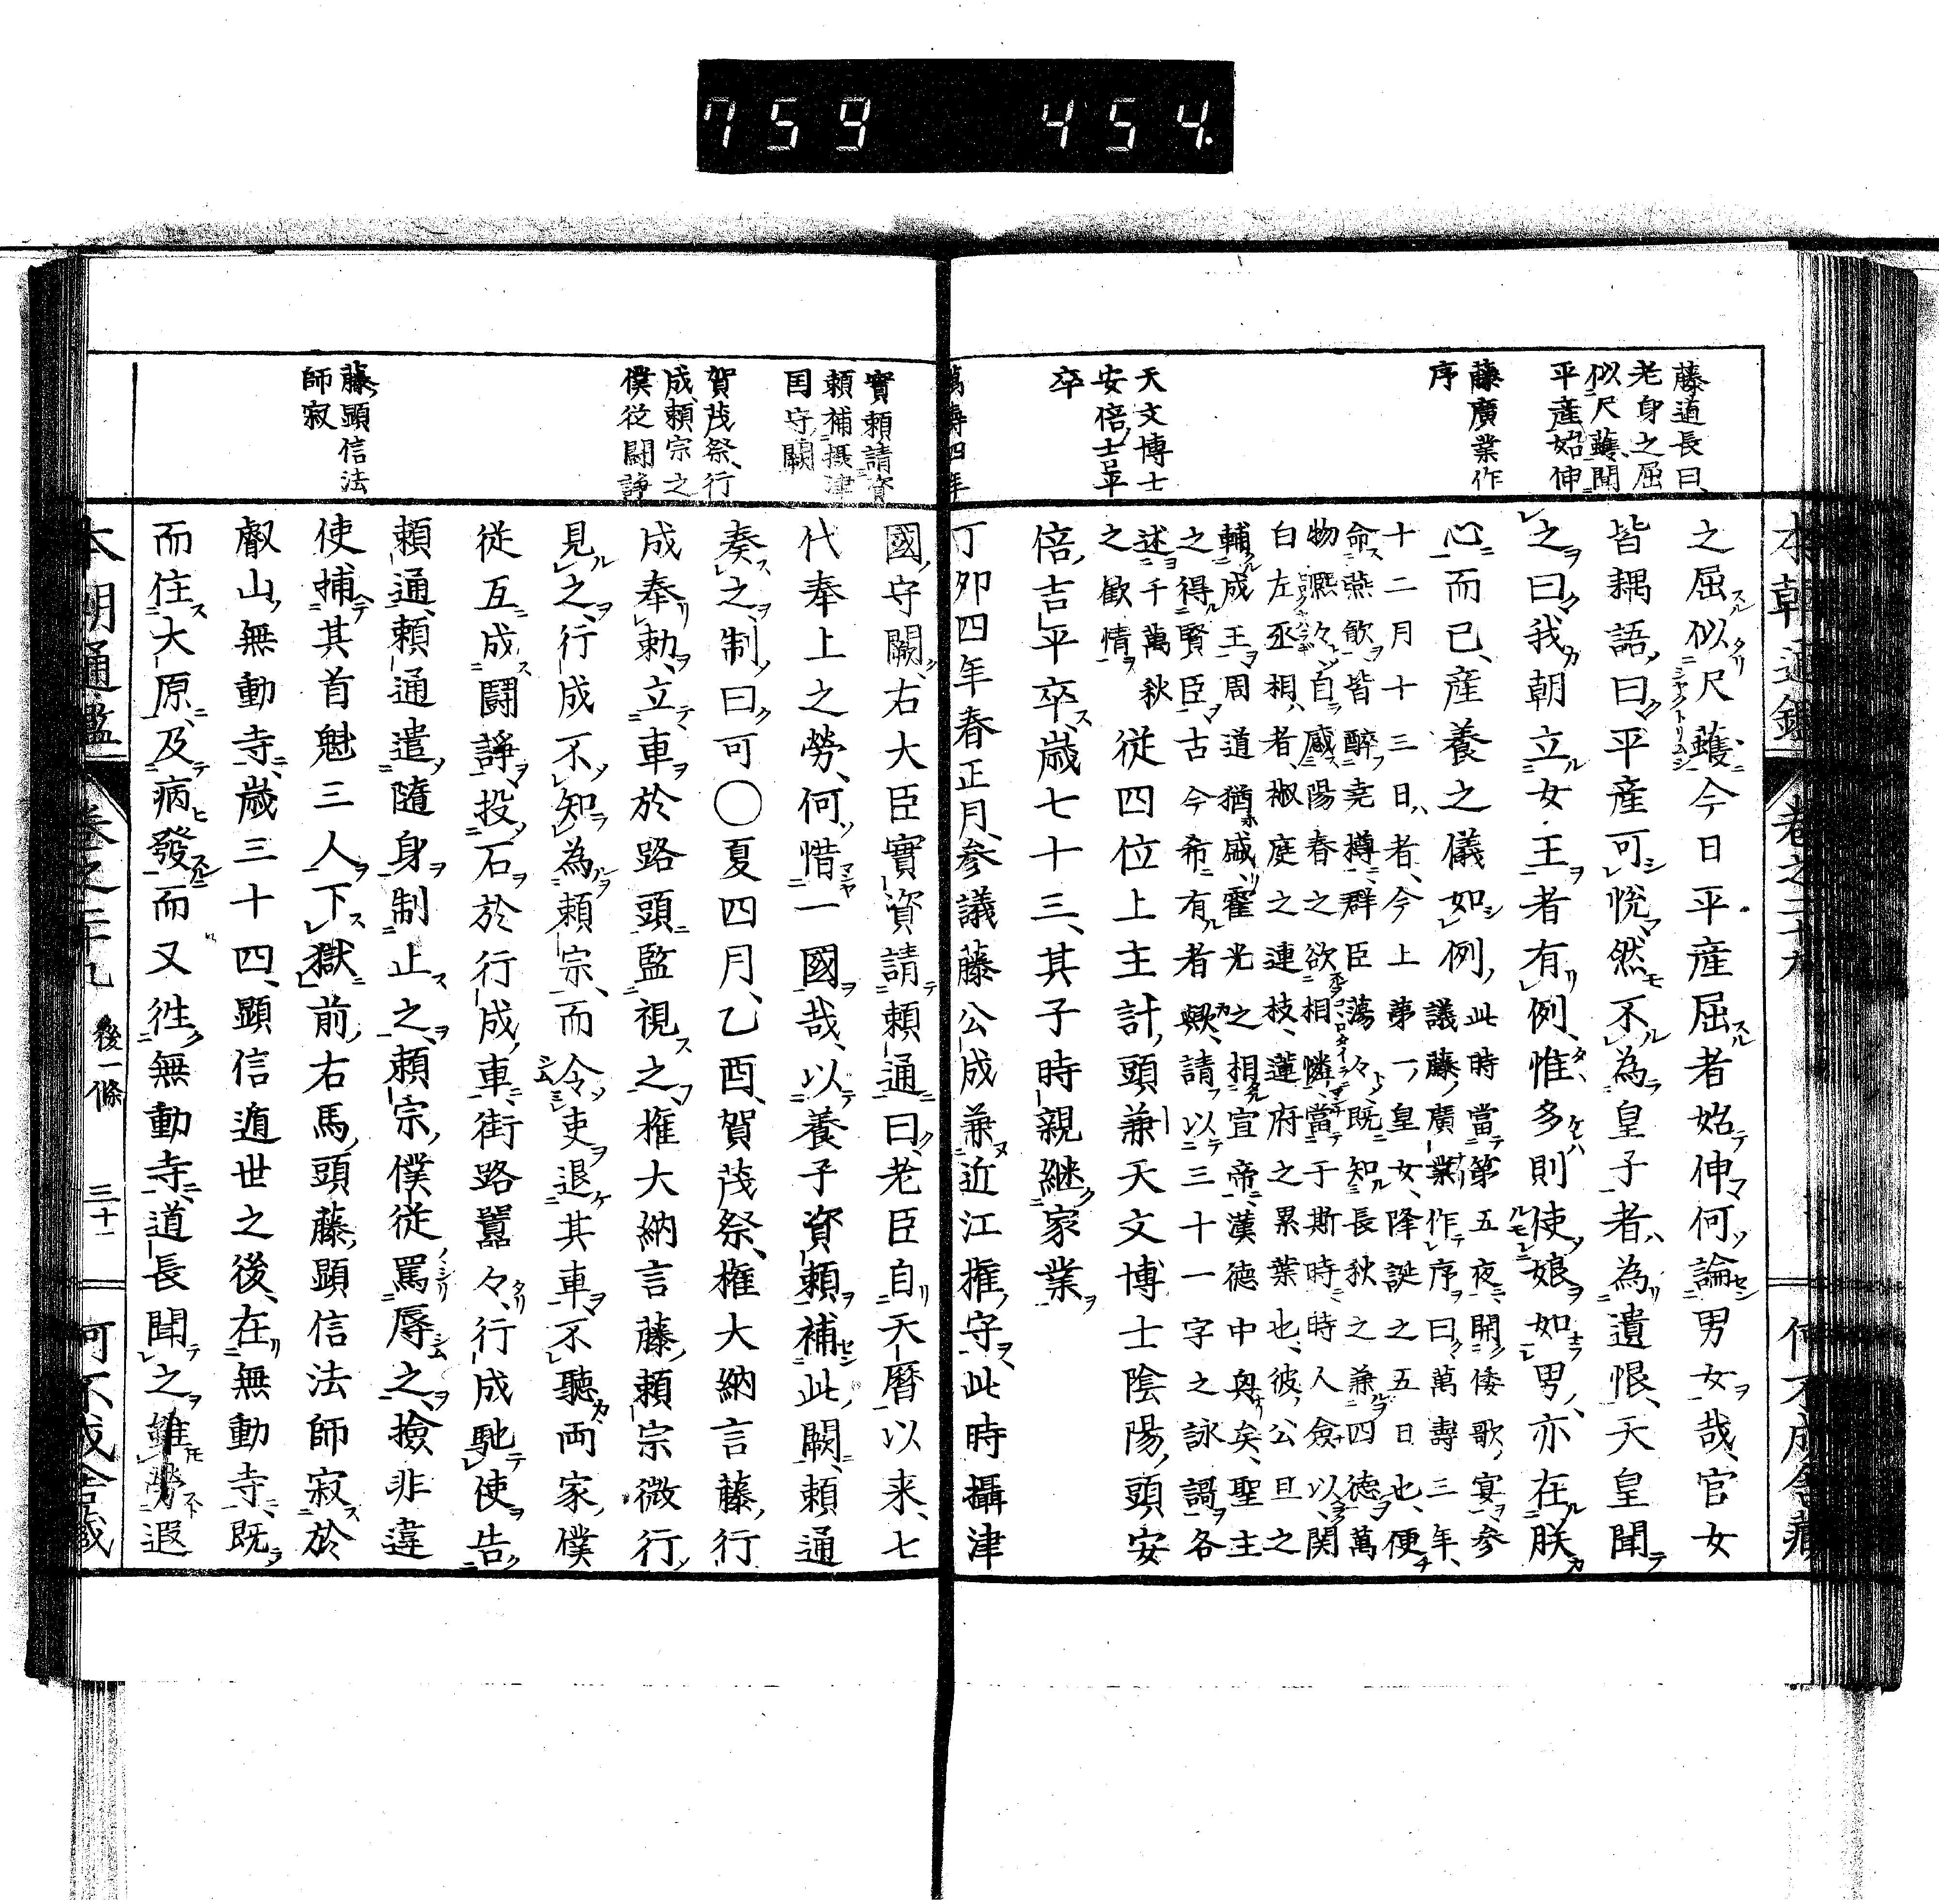 759 454.
本朝通鑑
卷之二十九
何不成舎藏
藤道長曰、
老身之屈
似尺蠖、聞
平産始伸
藤廣業作
序
天文博士
安倍吉平
卒
萬壽四年
之屈似尺蠖今日平産屈者始伸何論男女哉、官女
皆耦語曰平産可悅然不為皇子者為遺恨、天皇聞
之曰我朝立女王者有例、惟多則使娘如如男、亦在朕
心而已、産養之儀如例、
此時當第五夜開倭歌宴參
議藤廣業作序曰萬壽三年、
十二月十三日者、今上第一皇女、降誕之五日也、便
命燕飲、皆醉尭樽、群臣蕩々、既知長秋之兼四德萬
物熈々、自感陽春之欲相憐、當于斯時、時人僉以、関
白左丞相者、椒庭之連枝、蓮府之累葉也、彼公旦之
輔成王、周道猶盛、霍光之相宣帝、漢德中興矣、聖主
之得賢臣、古今希有者歟、請以三十一字之詠謌各
述千萬秋
之歡情
從四位上主計頭兼天文博士陰陽頭安
倍吉平卒、歲七十三、其子時親継家業
丁卯四年春正月、參議藤公成兼近江権守、此時攝津
實頼請資
頼補摂津
国守闕
賀茂祭、行
成頼宗之
僕從闘諍
藤顕信法
師寂
國守闕、右大臣實資請頼通曰、老臣自天暦以来、七
代奉上之勞、何惜一國哉、以養子資頼補此闕、頼通
奏之、制曰可○夏四月、乙酉、賀茂祭、権大納言藤行
成奉勅、立車於路頭監視之、権大納言藤頼宗微行
見之、行成不知為頼宗、而令吏退其車、不聽両家僕
從互成闘諍、投石於行成車、街路囂々、行成馳使告
頼通、頼通遣隨身制止之、頼宗僕従罵辱之、撿非違
使捕其首魁三人下獄、前右馬頭藤顕信法師寂於
叡山無動寺、歲三十四、顕信遁世之後、在無動寺、既
而住大原、及病發而又徃無動寺、道長聞之雖勞遐
本朝通鑑
卷之二十九
後一條
三十一
何不成舎藏